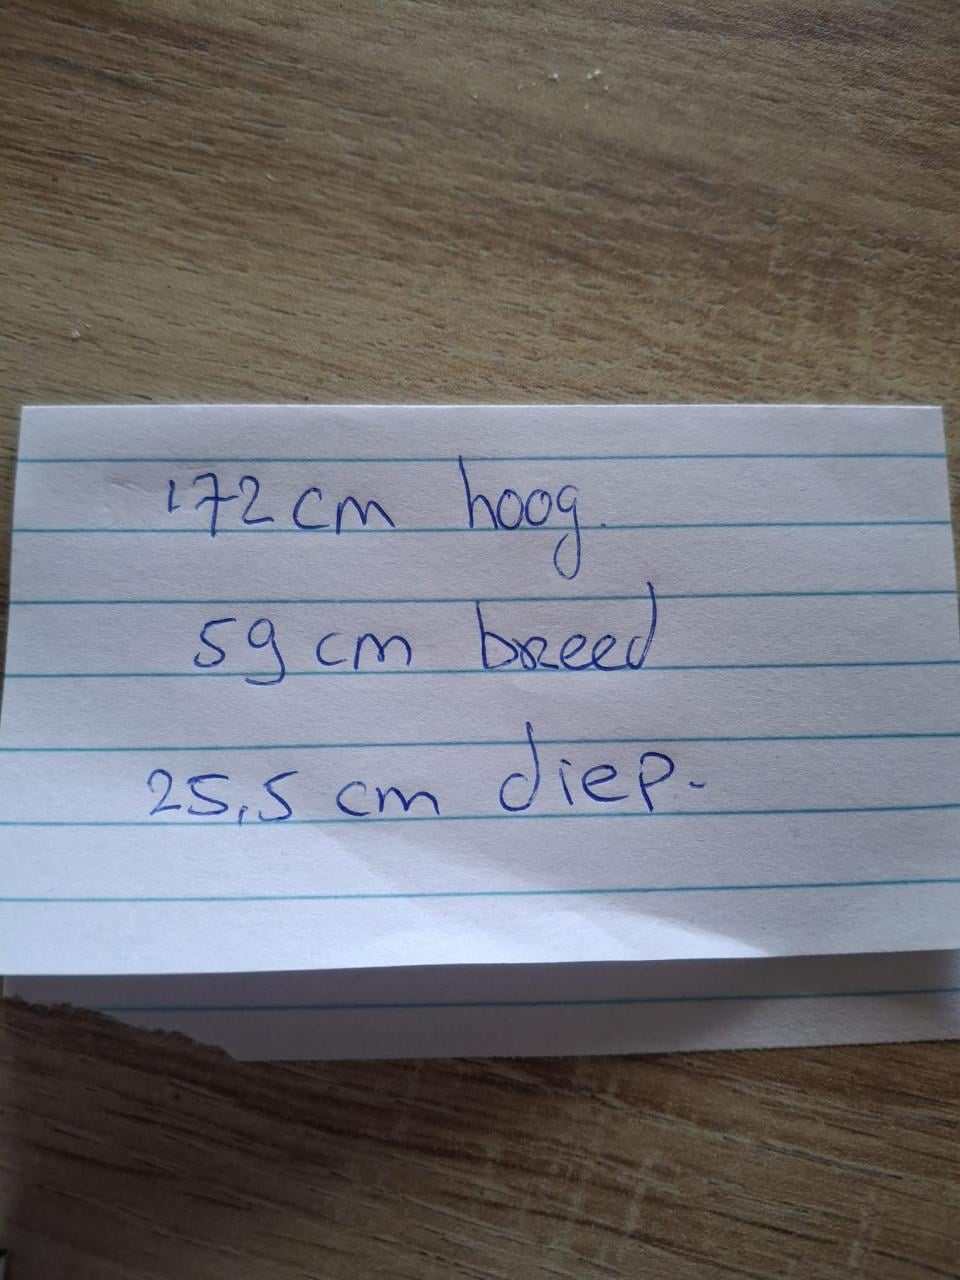 172 cm hoog.
59 cm breed
25,5 cm diep.